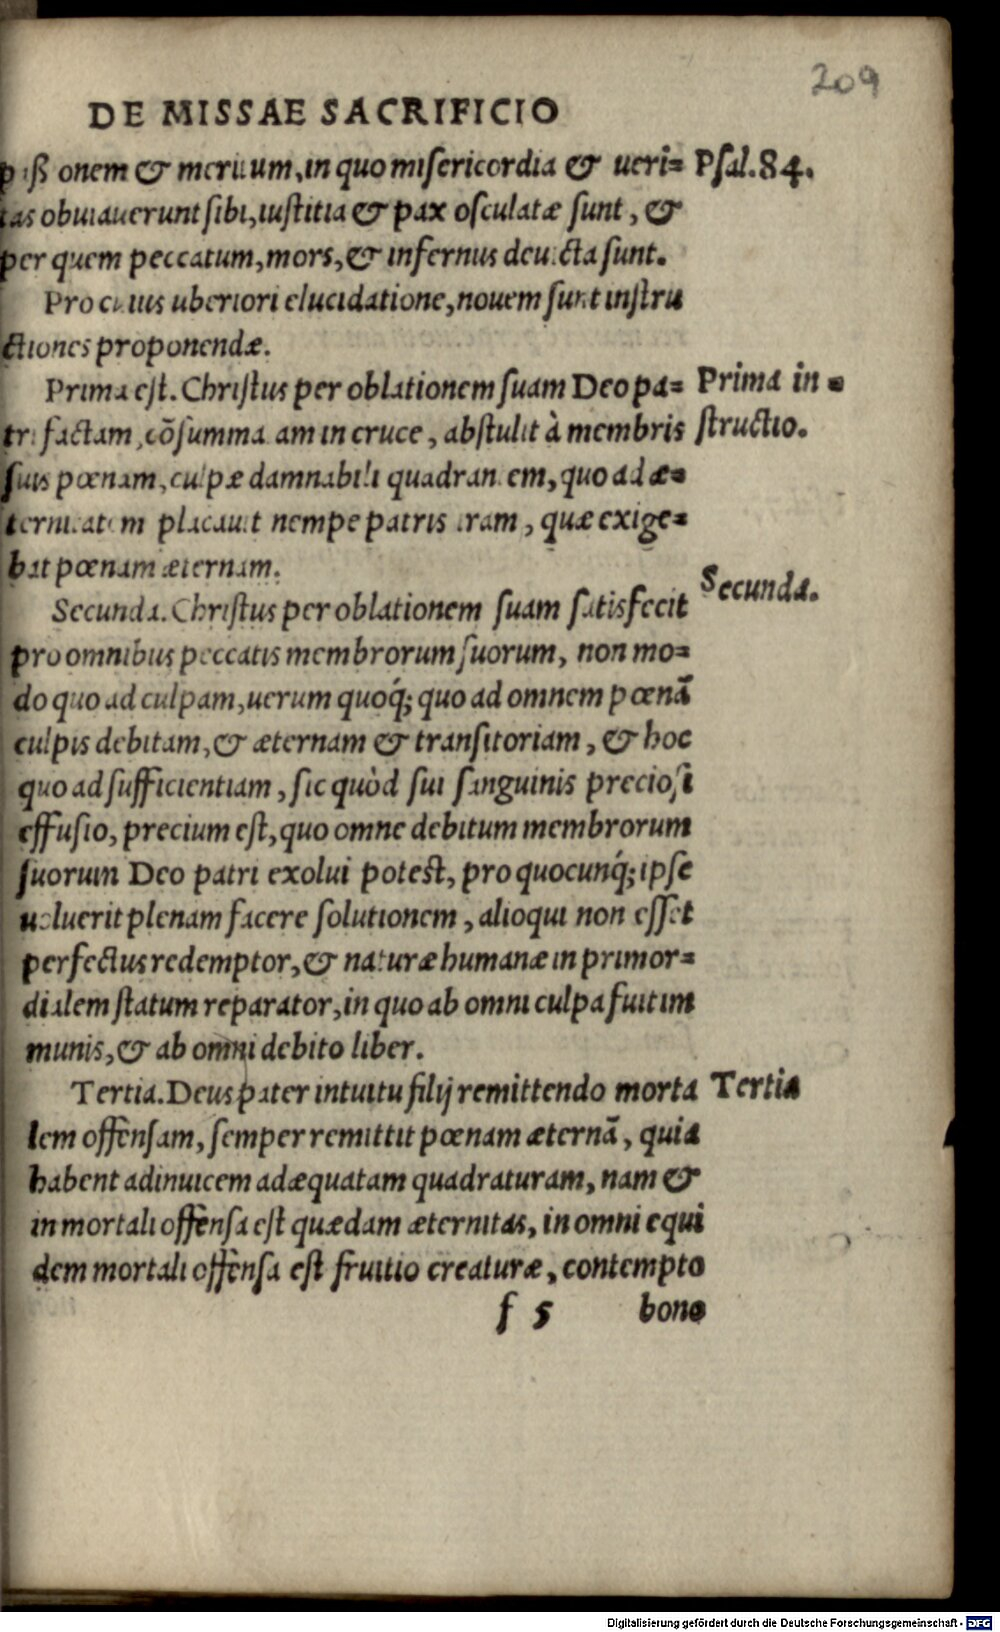 209
DE MISSAE SACRIFICIO
paßionem & meritum, in quo misericordia & ueri= Psal.84.
tas obuiauerunt sibi, iustitia & pax osculatæ sunt, &
per quem peccatum, mors, & infernus deuicta sunt.
Pro cuius uberiori elucidatione, nouem sunt instru
ctiones proponendæ.
Prima est. Christus per oblationem suam Deo pa= Prima in=
tri factam, cōsummatam in cruce, abstulit à membris structio.
suis pœnam, culpæ damnabili quadrantem, quo ad æ=
ternitatem placauit nempe patris iram, quæ exige=
bat pœnam æternam.
Secunda. Christus per oblationem suam satisfecit Secunda.
pro omnibus peccatis membrorum suorum, non mo=
do quo ad culpam, uerum quoq́; quo ad omnem pœnā
culpis debitam, & æternam & transitoriam, & hoc
quo ad sufficientiam, sic quòd sui sanguinis preciosi
effusio, precium est, quo omne debitum membrorum
suorum Deo patri exolui potest, pro quocunq́; ipse
uoluerit plenam facere solutionem, alioqui non esset
perfectus redemptor, & naturæ humanæ in primor=
dialem statum reparator, in quo ab omni culpa fuit im
munis, & ab omni debito liber.
Tertia. Deus pater intuitu filij remittendo morta Tertia
lem offensam, semper remittit pœnam æternā, quia
habent adinuicem adæquatam quadraturam, nam &
in mortali offensa est quædam æternitas, in omni equi
dem mortali offensa est fruitio creaturæ, contempto
f 5 bono
Digitalisierung gefördert durch die Deutsche Forschungsgemeinschaft - DFG